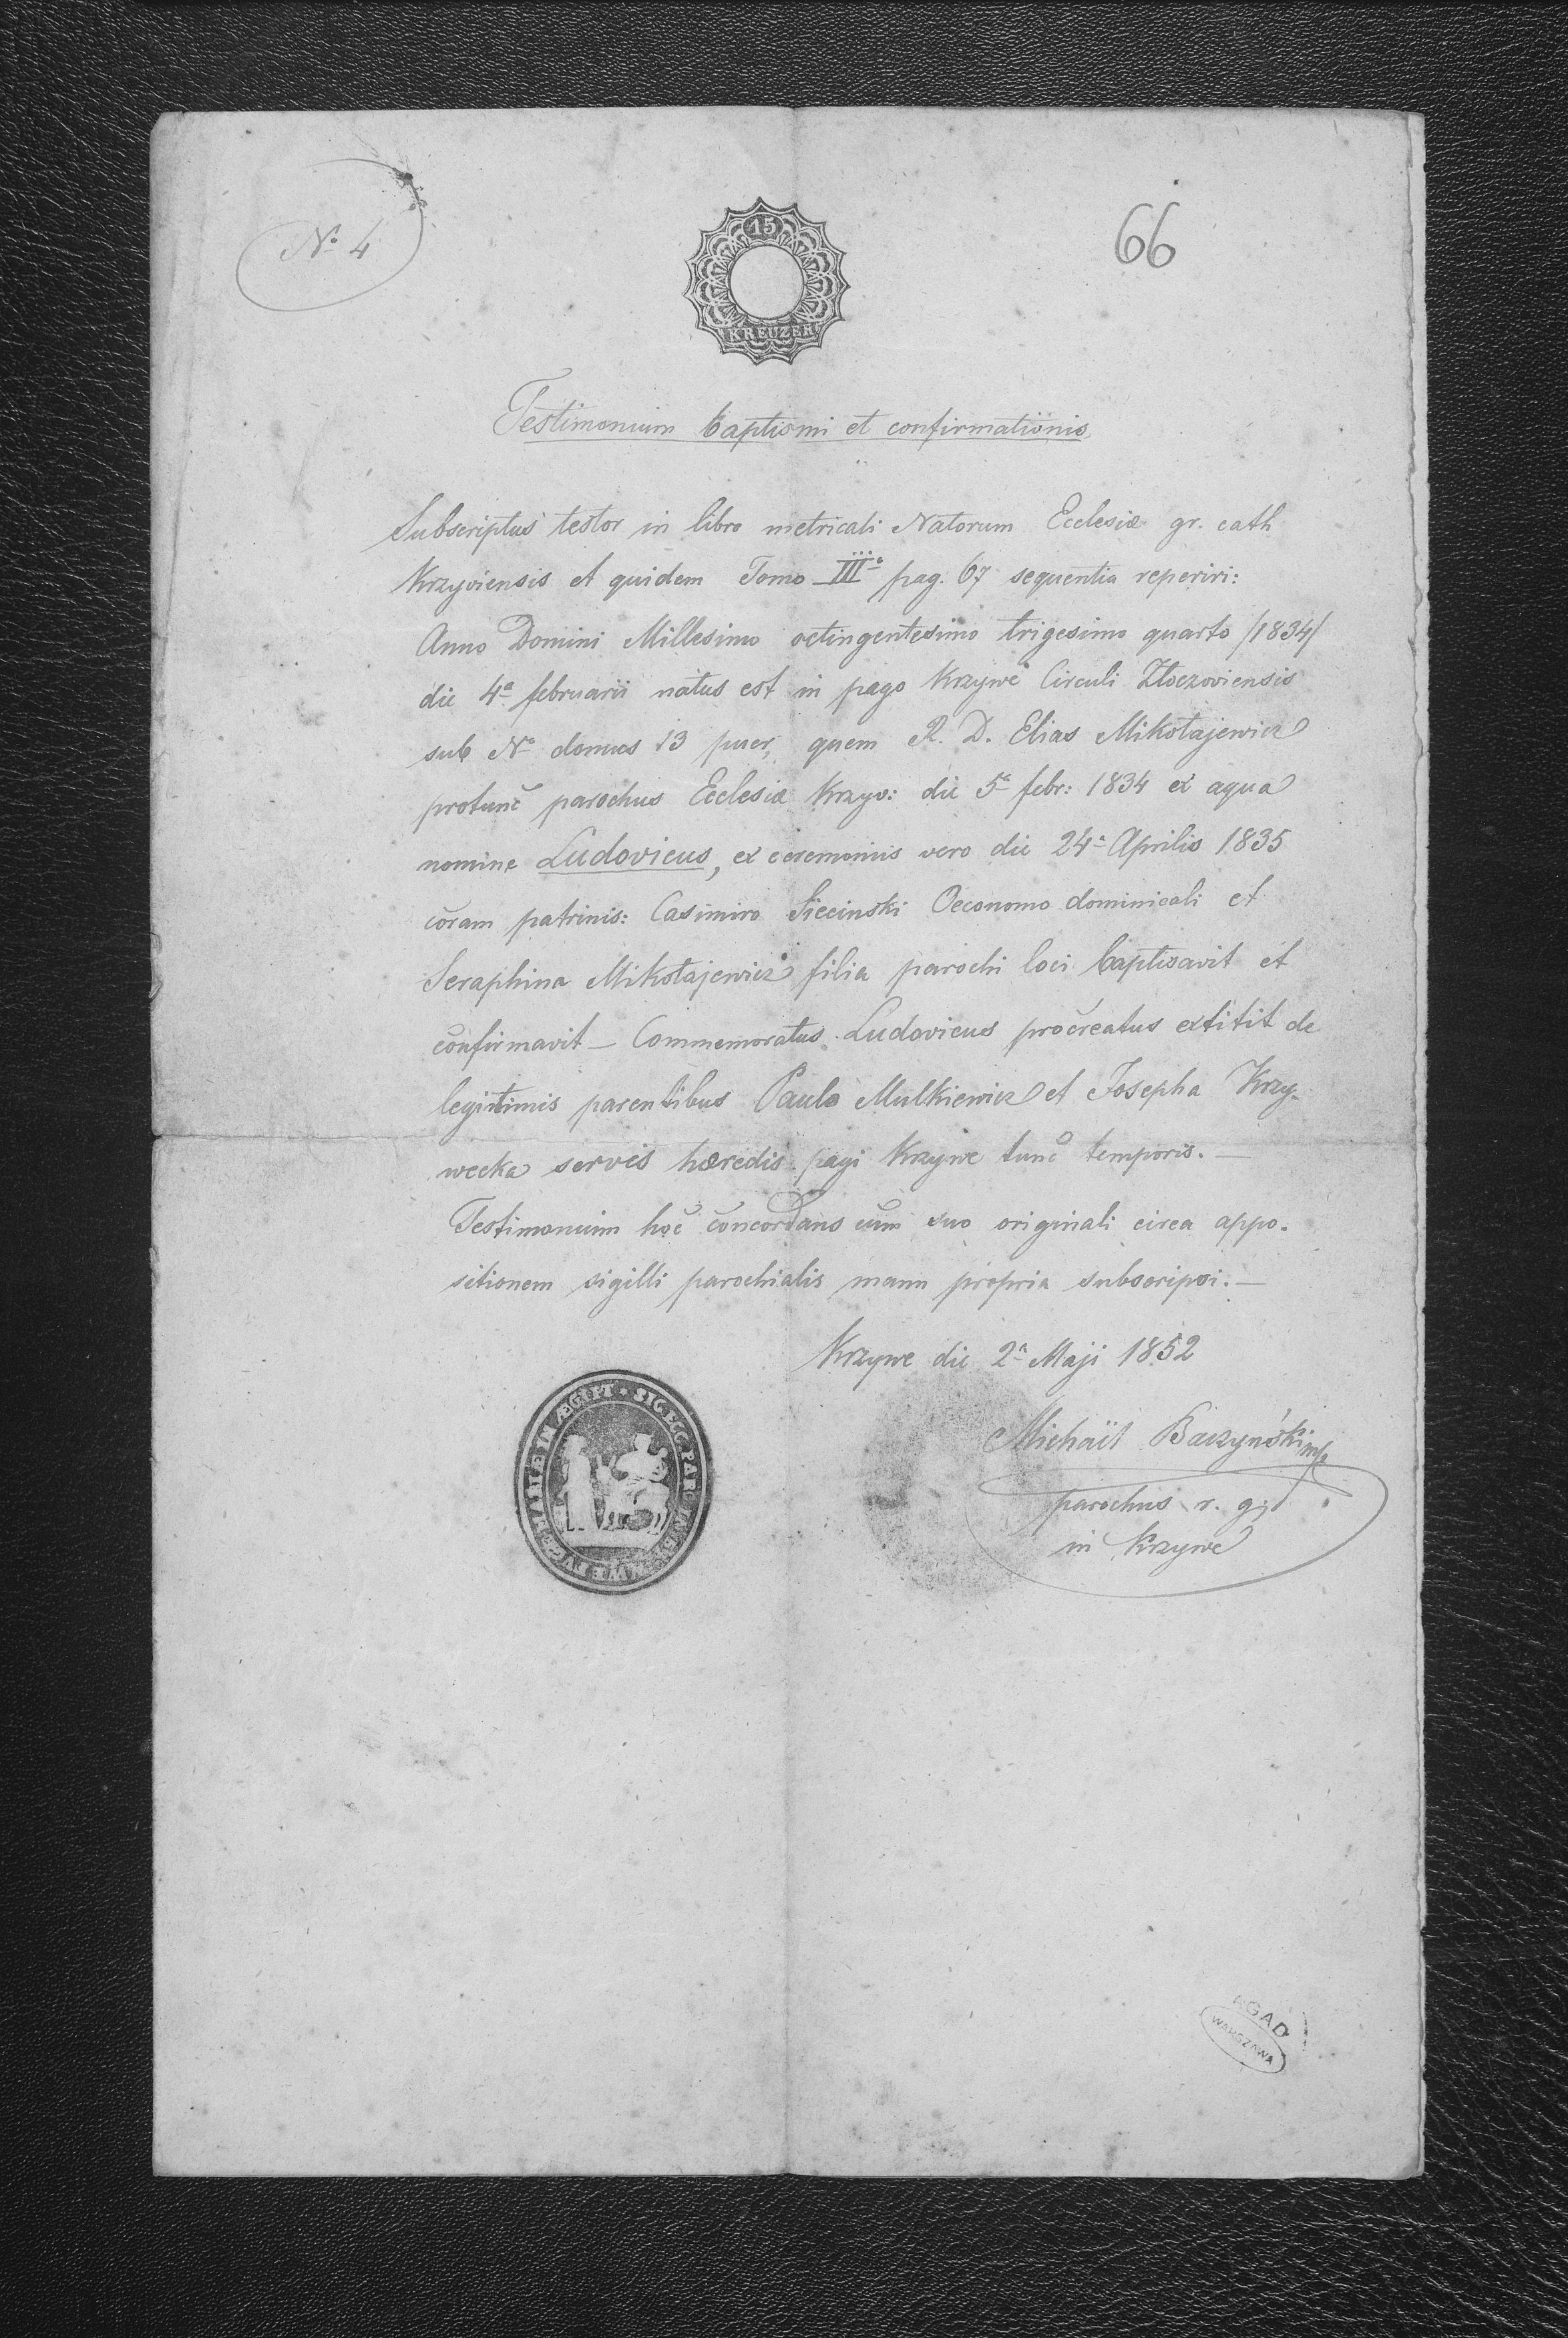 No 4
15
KREUZER
66
Testimonium baptismi et confirmationis
Subscriptus testor in libro metricali Natorum Ecclesiæ gr. cath
Krzyviensis et quidem Tomo IIIo pag. 67 sequentia reperiri:
Anno Domini Millesimo octingentesimo trigesimo quarto /1834/
die 4a februarii natus est in pago Krzywe Circuli Złoczoviensis
sub No domus 13 puer, quem R. D. Elias Mikołajewicz
protunc parochus Ecclesiæ Krzyv: die 5a febr: 1834 ex aqua
nomine Ludovicus, ex ceremoniis vero die 24a Aprilis 1835
coram patrinis: Casimiro Siecinski Oeconomo dominicali et
Seraphina Mikołajewicz filia parochi loci baptisavit et
confirmavit – Commemoratus Ludovicus procreatus extitit de
legitimis parentibus Paulo Mulkiewicz et Josepha Krzy-
wecka servis hæredis pagi Krzywe tunc temporis. –
Testimonium hoc concordans cum suo originali circa appo-
sitionem sigilli parochialis manu propria subscripsi. –
Krzywe die 2a Maji 1852
Michaił Baczyński mp
parochus r. g.
in Krzywe
SIG ECC PAR KRZYWE FUGÆ MARIÆ IN ÆGIPT
AGAD
WARSZAWA